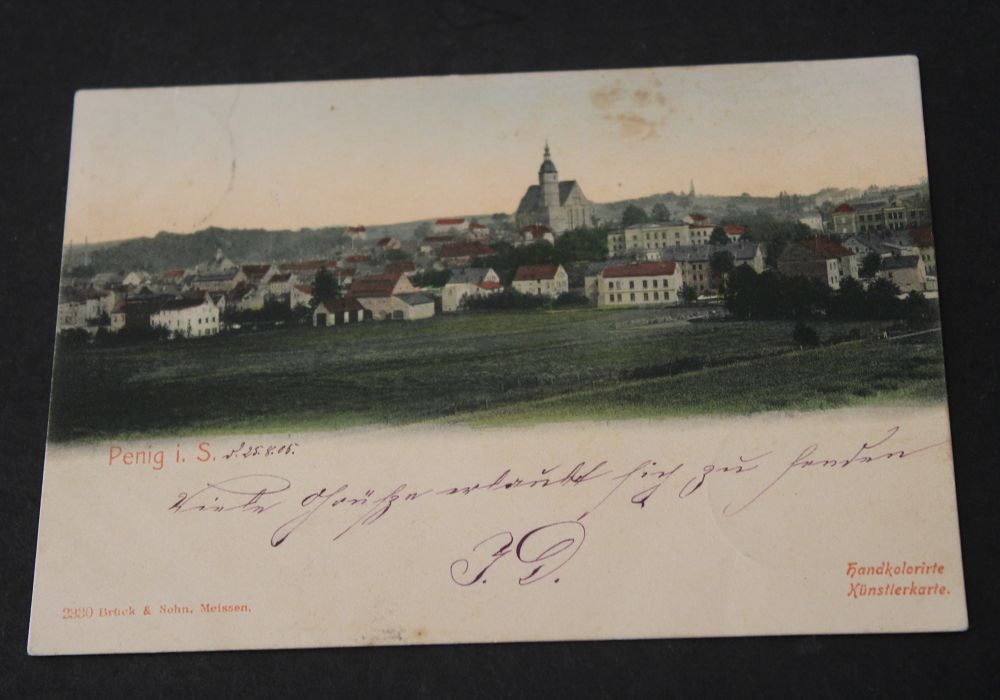 Penig i. S. d. 25.8.05.
Viele Grüße erlaubt sich zu senden
J. D.
Handkolorirte
Künstlerkarte.
2330 Brück & Sohn, Meissen.